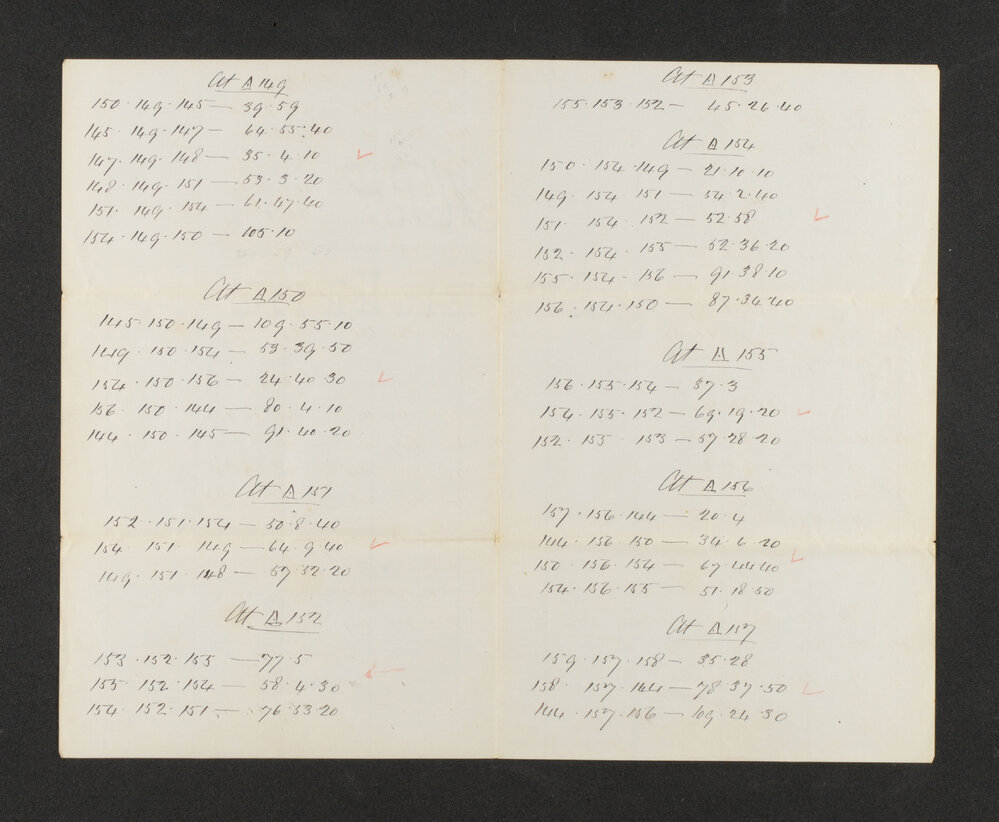 At △ 149
150 · 149 · 145 — 39 · 59
145 · 149 · 147 — 64 · 55 · 40
147 · 149 · 148 — 35 · 4 · 10
148 · 149 · 151 — 53 · 3 · 20
151 · 149 · 154 — 61 · 47 · 40
154 · 149 · 150 — 105 · 10
At △ 150
145 · 150 · 149 — 109 · 55 · 10
149 · 150 · 154 — 53 · 39 · 50
154 · 150 · 156 — 24 · 40 · 30
156 · 150 · 144 — 80 · 4 · 10
144 · 150 · 145 — 91 · 40 · 20
At △ 151
152 · 151 · 154 — 50 · 8 · 40
154 · 151 · 149 — 64 · 9 · 40
149 · 151 · 148 — 57 · 32 · 20
At △ 152
153 · 152 · 155 — 77 · 5
155 · 152 · 154 — 58 · 4 · 30
154 · 152 · 151 — 76 · 53 · 20
At △ 153
155 · 153 · 152 — 45 · 26 · 40
At △ 154
150 · 154 · 149 — 21 · 10 · 10
149 · 154 · 151 — 54 · 2 · 40
151 · 154 · 152 — 52 · 58
152 · 154 · 155 — 52 · 36 · 20
155 · 154 — 156 — 91 · 38 · 10
156 · 154 · 150 — 87 · 34 · 40
At △ 155
156 · 155 · 154 — 37 · 3
154 · 155 · 152 — 69 · 19 · 20
152 · 155 · 153 — 57 · 28 · 20
At △ 156
157 · 156 · 144 — 20 · 4
144 · 156 · 150 — 34 · 6 · 20
150 · 156 · 154 — 67 · 44 · 40
154 · 156 · 155 — 51 · 18 · 50
At △ 157
159 · 157 · 158 — 35 · 28
158 · 157 · 144 — 78 · 37 · 50
144 · 157 · 156 — 109 · 24 · 30